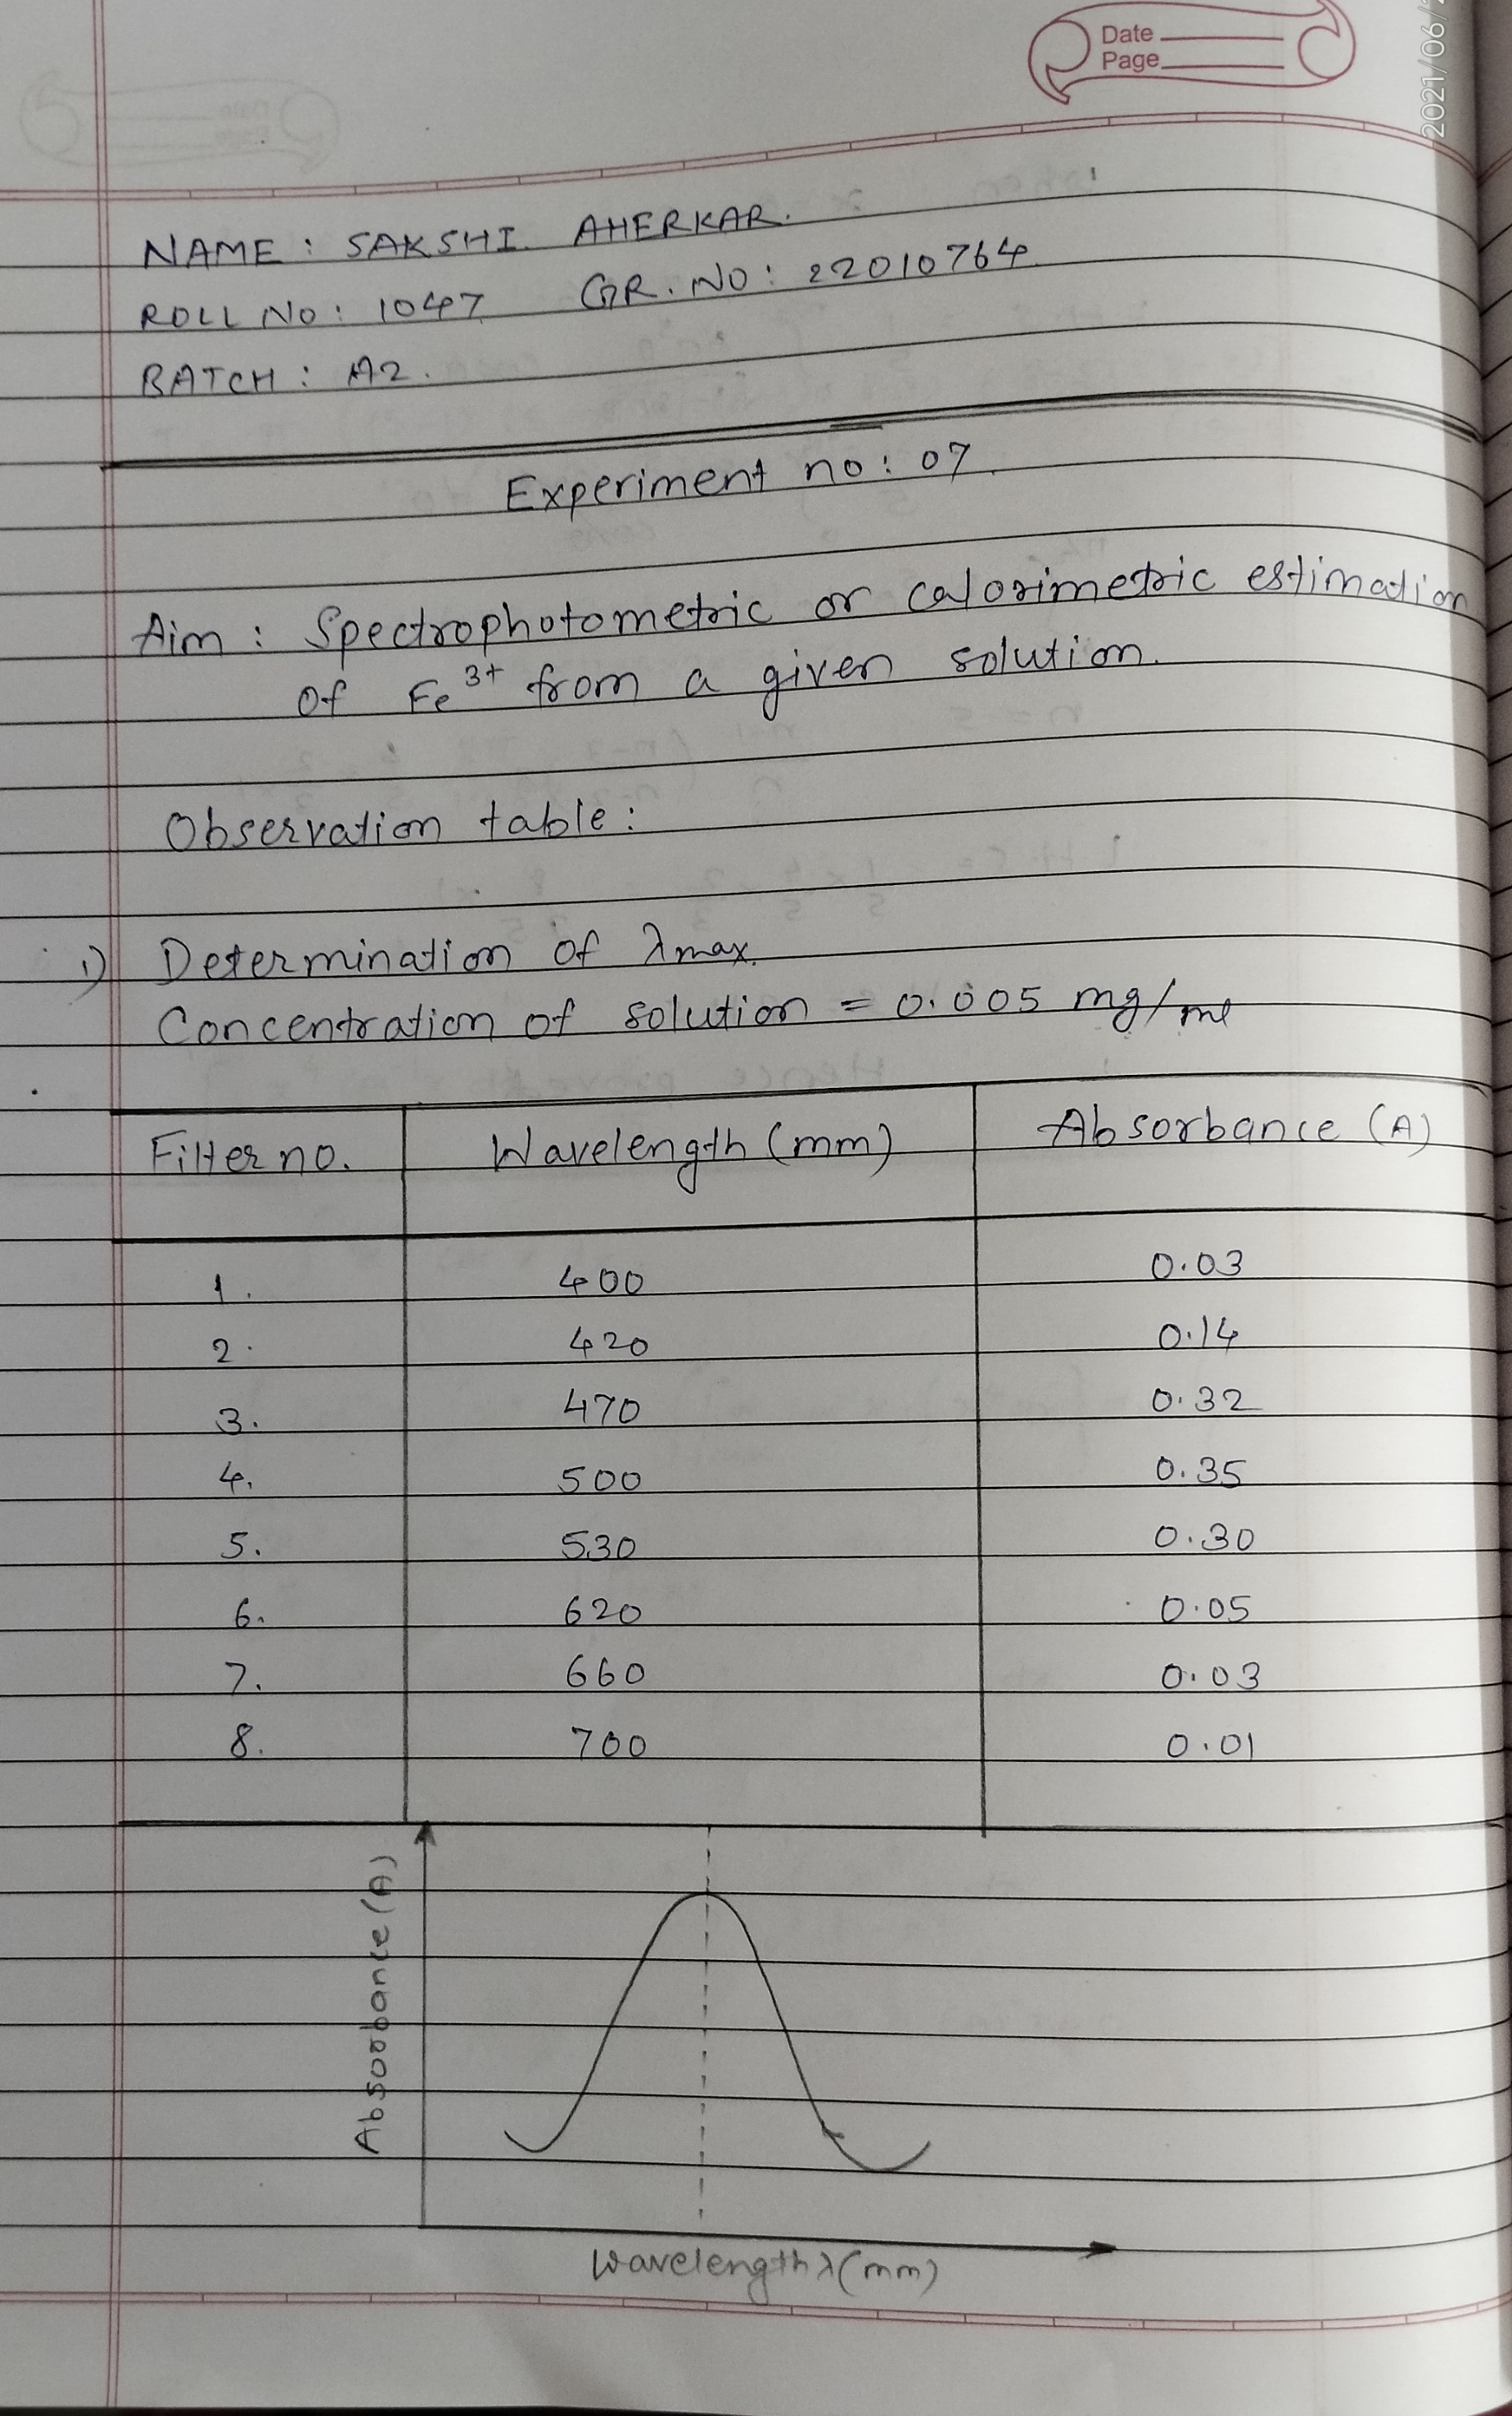 Date
Page
2021/06/
NAME : SAKSHI. AHERKAR.
ROLL NO : 1047 GR. NO : 22010764
BATCH : A2.
Experiment no : 07.
Aim : Spectrophotometric or calorimetric estimation
of Fe3+ from a given solution.
Observation table :
1) Determination of λmax.
Concentration of solution = 0.005 mg/ml
Filter no. Wavelength (mm) Absorbance (A)
1. 400 0.03
2. 420 0.14
3. 470 0.32
4. 500 0.35
5. 530 0.30
6. 620 0.05
7. 660 0.03
8. 700 0.01
Absorbance (A)
Wavelength λ (mm)